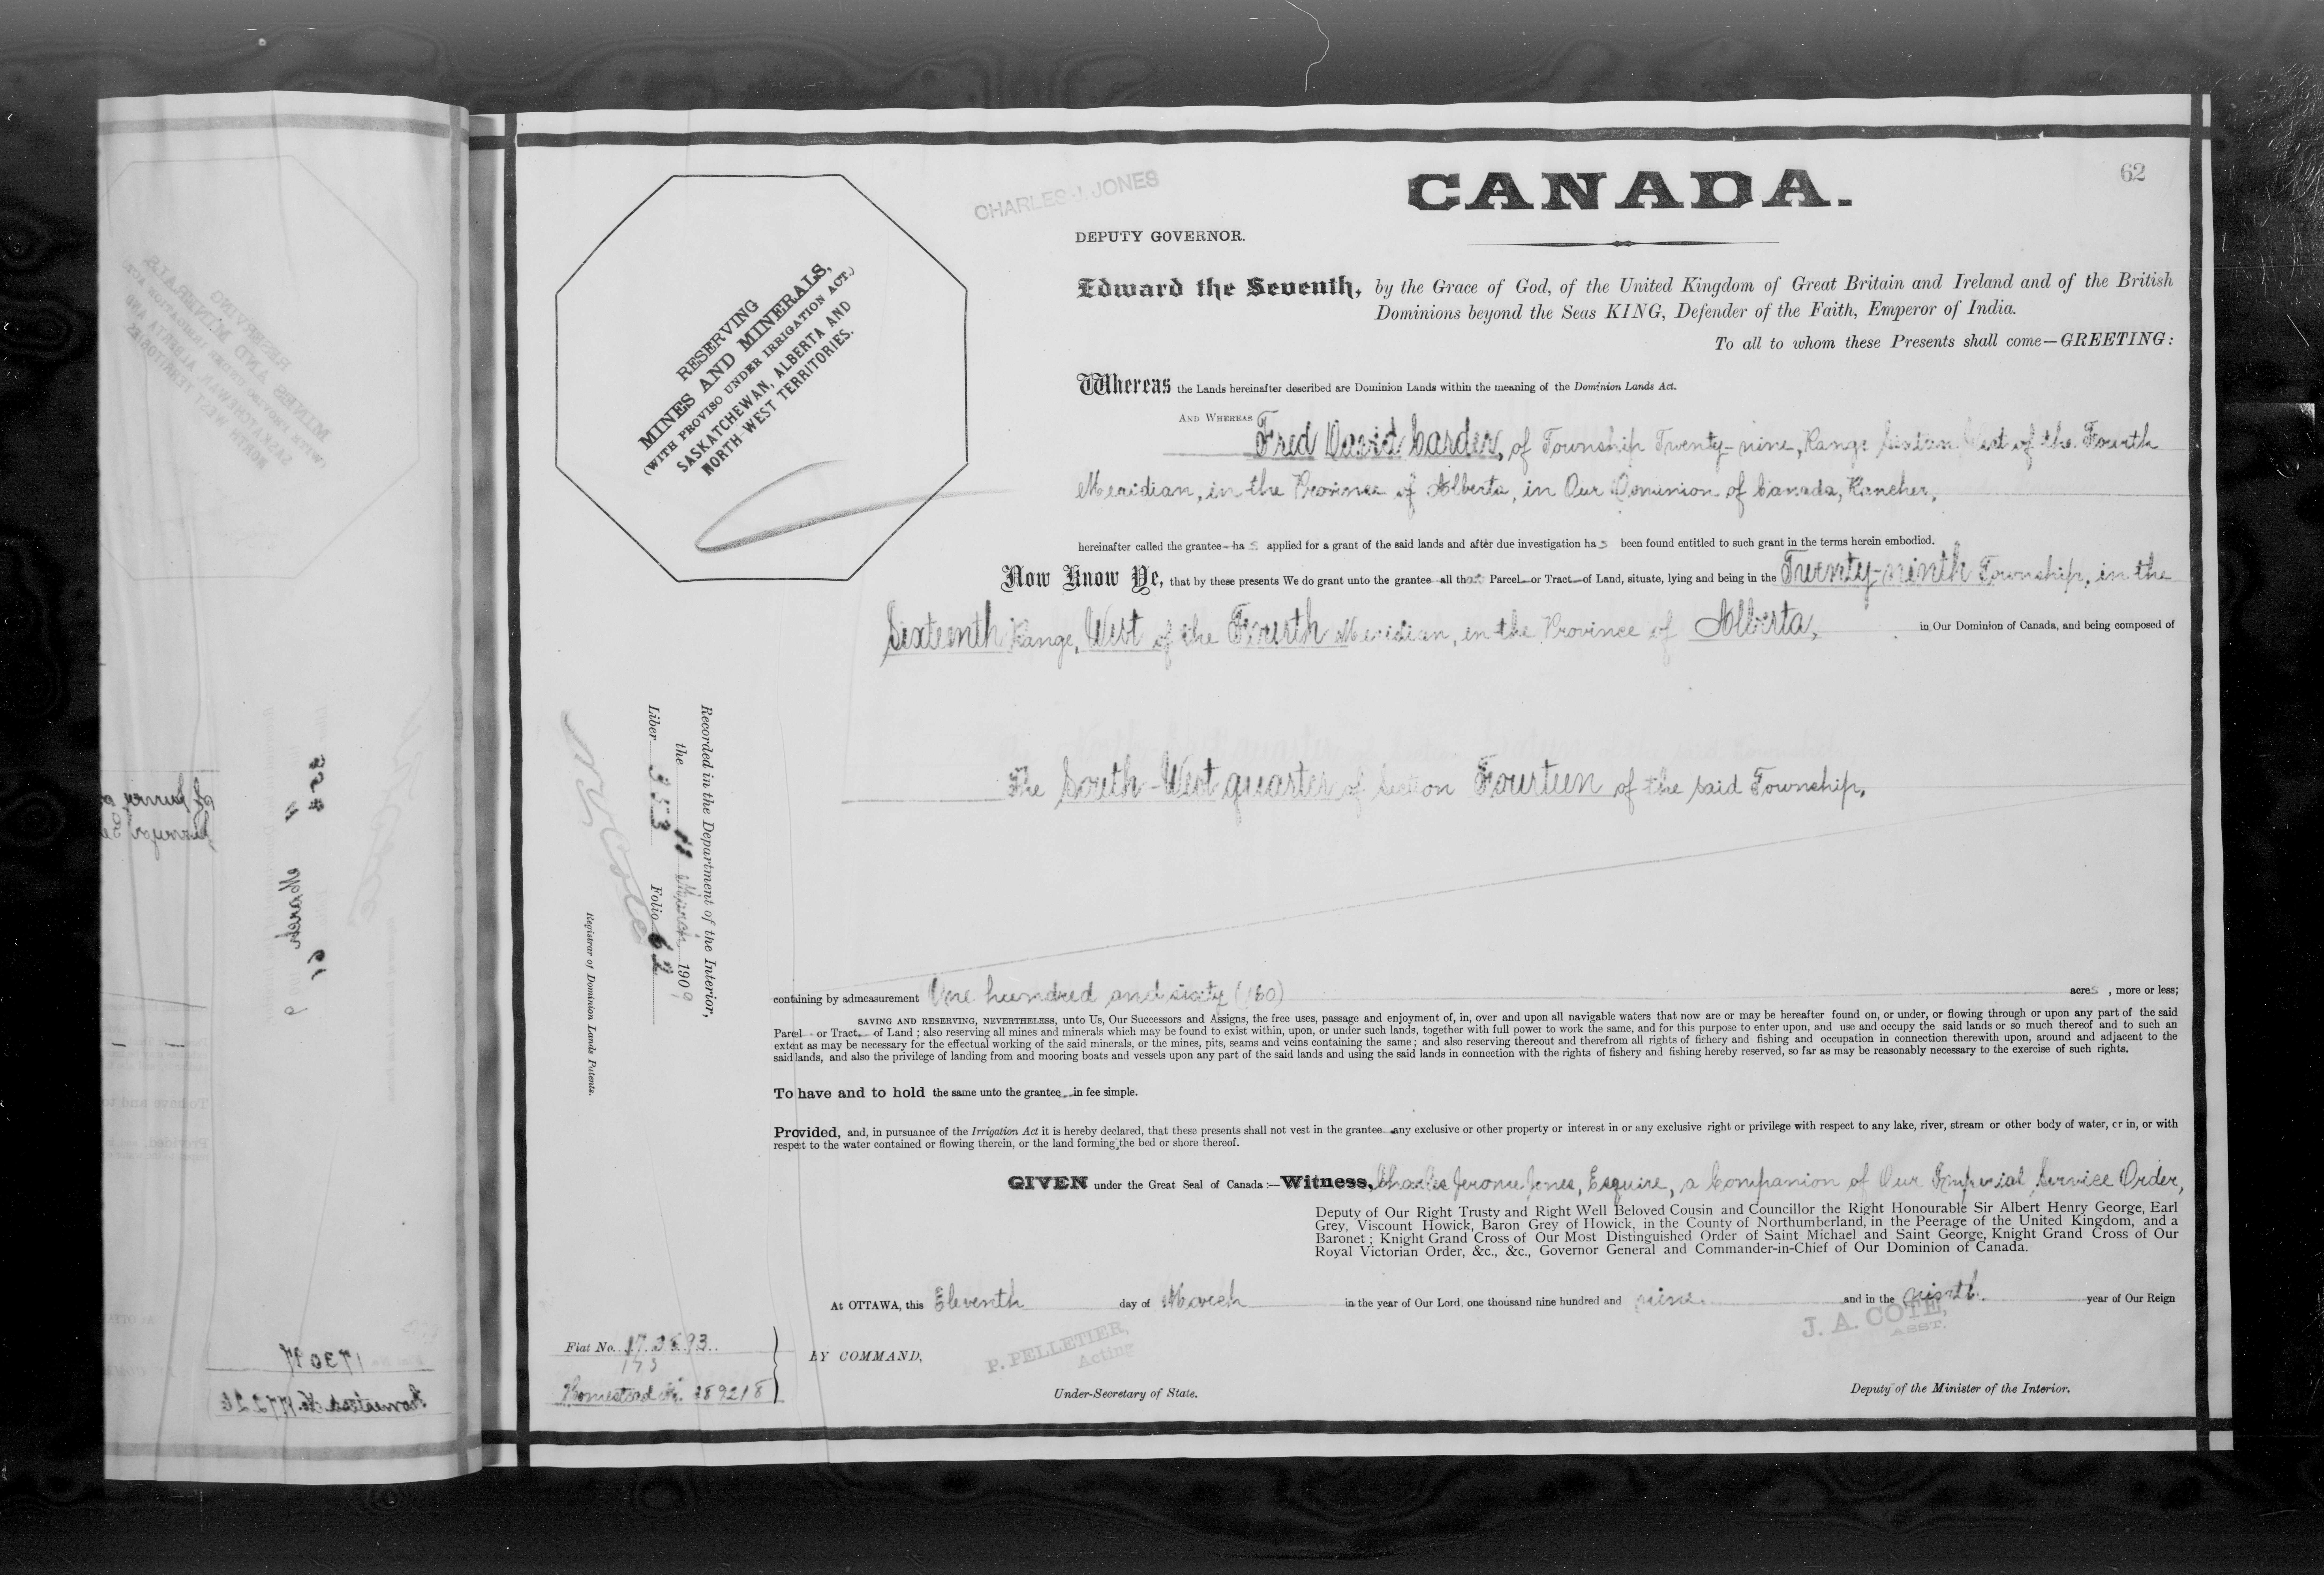 62
CHARLES J. JONES
CANADA.
DEPUTY GOVERNOR.
RESERVING
MINES AND MINERALS,
(WITH PROVISO UNDER IRRIGATION ACT.)
SASKATCHEWAN, ALBERTA AND
NORTH WEST TERRITORIES.
Edward the Seventh, by the Grace of God, of the United Kingdom of Great Britain and Ireland and of the British
Dominions beyond the Seas KING, Defender of the Faith, Emperor of India.
To all to whom these Presents shall come—GREETING:
Whereas the Lands hereinafter described are Dominion Lands within the meaning of the Dominion Lands Act.
AND WHEREAS Fred David Carder, of Township Twenty-nine, Range Sixteen West of the Fourth
Meridian, in the Province of Alberta, in Our Dominion of Canada, Rancher,
hereinafter called the grantee ha s applied for a grant of the said lands and after due investigation ha s been found entitled to such grant in the terms herein embodied.
Now Know Ye, that by these presents We do grant unto the grantee all that Parcel or Tract of Land, situate, lying and being in the Twenty-ninth Township, in the
Sixteenth Range, West of the Fourth Meridian, in the Province of Alberta, in Our Dominion of Canada, and being composed of
The South-West quarter of Section Fourteen of the said Township,
Recorded in the Department of the Interior,
the 11 March 1909
Liber 353 Folio 62
Registrar of Dominion Lands Patents.
containing by admeasurement One hundred and sixty (160) acres , more or less;
SAVING AND RESERVING, NEVERTHELESS, unto Us, Our Successors and Assigns, the free uses, passage and enjoyment of, in, over and upon all navigable waters that now are or may be hereafter found on, or under, or flowing through or upon any part of the said
Parcel or Tract of Land ; also reserving all mines and minerals which may be found to exist within, upon, or under such lands, together with full power to work the same, and for this purpose to enter upon, and use and occupy the said lands or so much thereof and to such an
extent as may be necessary for the effectual working of the said minerals, or the mines, pits, seams and veins containing the same ; and also reserving thereout and therefrom all rights of fishery and fishing and occupation in connection therewith upon, around and adjacent to the
said lands, and also the privilege of landing from and mooring boats and vessels upon any part of the said lands and using the said lands in connection with the rights of fishery and fishing hereby reserved, so far as may be reasonably necessary to the exercise of such rights.
To have and to hold the same unto the grantee in fee simple.
Provided, and, in pursuance of the Irrigation Act it is hereby declared, that these presents shall not vest in the grantee any exclusive or other property or interest in or any exclusive right or privilege with respect to any lake, river, stream or other body of water, or in, or with
respect to the water contained or flowing therein, or the land forming the bed or shore thereof.
GIVEN under the Great Seal of Canada :—Witness, Charles Jerome Jones, Esquire, a Companion of Our Imperial Service Order,
Deputy of Our Right Trusty and Right Well Beloved Cousin and Councillor the Right Honourable Sir Albert Henry George, Earl
Grey, Viscount Howick, Baron Grey of Howick, in the County of Northumberland, in the Peerage of the United Kingdom, and a
Baronet ; Knight Grand Cross of Our Most Distinguished Order of Saint Michael and Saint George, Knight Grand Cross of Our
Royal Victorian Order, &c., &c., Governor General and Commander-in-Chief of Our Dominion of Canada.
At OTTAWA, this Eleventh day of March in the year of Our Lord one thousand nine hundred and nine and in the ninth year of Our Reign
J. A. COTE,
ASST.
P. PELLETIER,
Acting
BY COMMAND,
Under-Secretary of State.
Deputy of the Minister of the Interior.
Fiat No.
Homestead